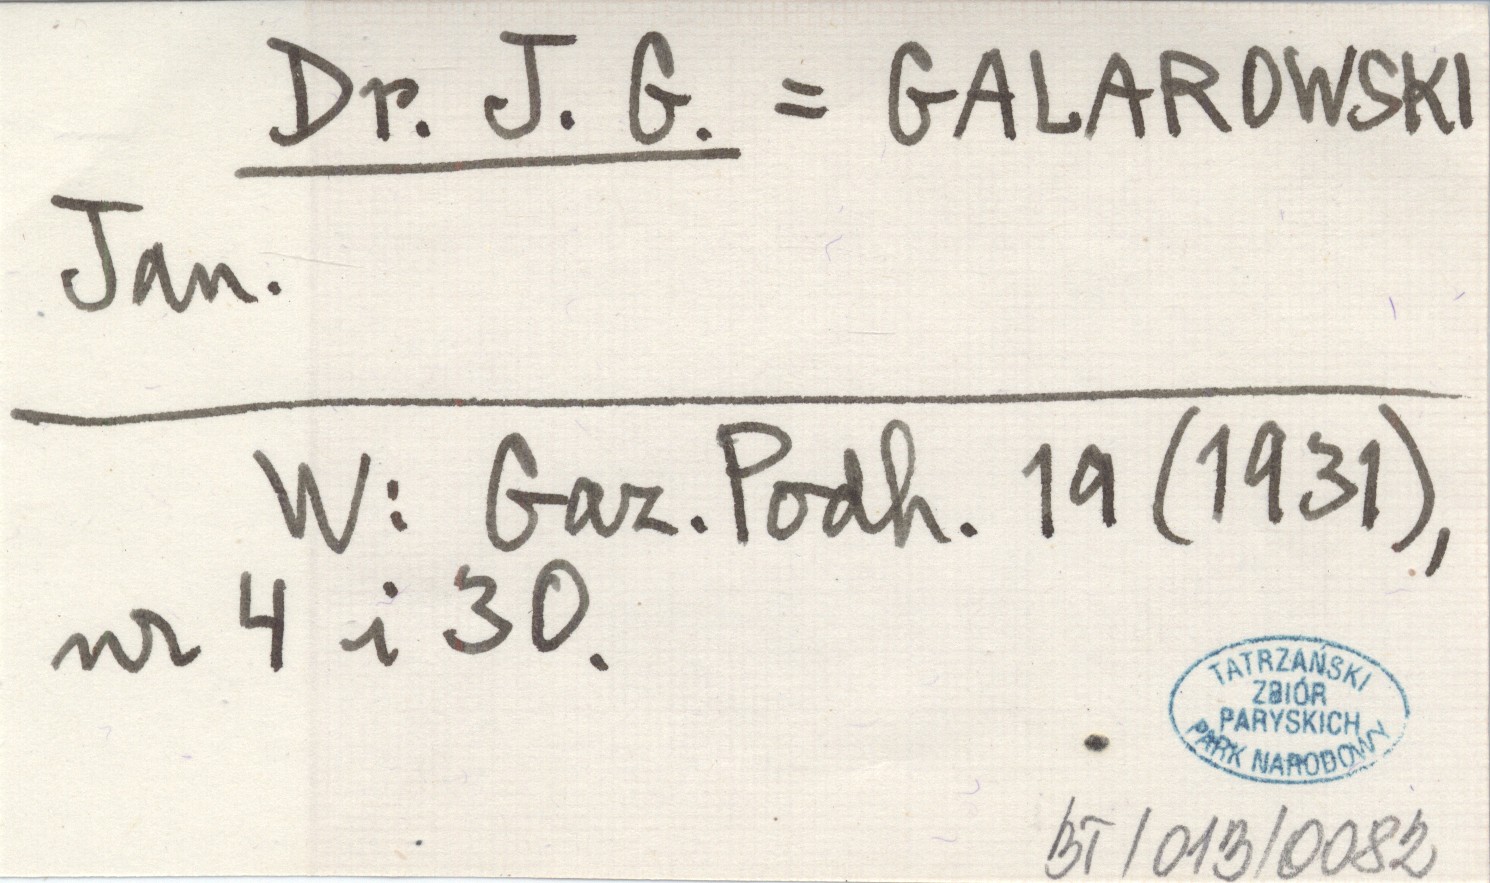 Dr. J. G. = GALAROWSKI
Jan.
W: Gaz. Podh. 19 (1931),
nr 4 i 30.
TATRZAŃSKI
ZBIÓR
PARYSKICH
PARK NARODOWY
BT/013/0082